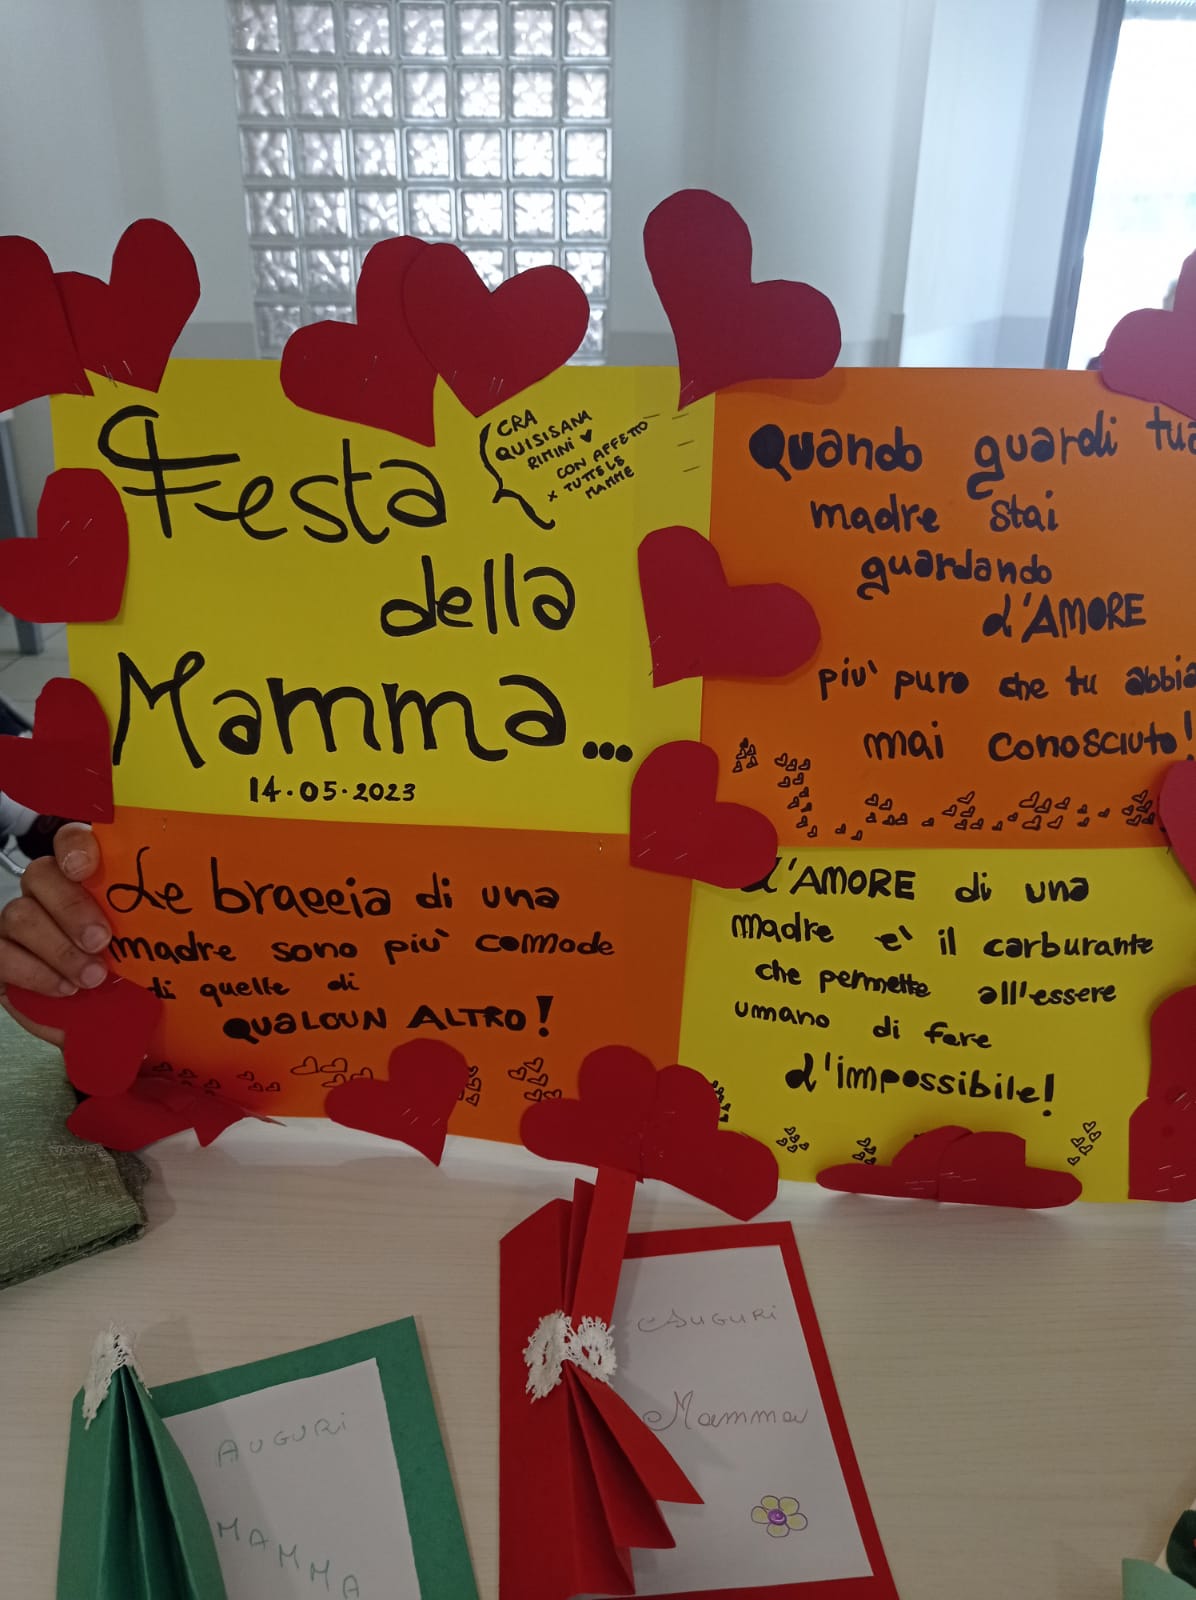 Festa
della
Mamma...
14.05.2023
CRA
QUISISANA
RIMINI ♥
CON AFFETTO
x TUTTE LE
MAMME
Quando guardi tua
madre stai
guardando
L'AMORE
piu' puro che tu abbia
mai conosciuto!
Le braccia di una
madre sono più comode
di quelle di
QUALOUN ALTRO!
L'AMORE di una
madre e' il carburante
che permette all'essere
umano di fare
L'impossibile!
AUGURI
MAMMA
AUGURI
Mamma